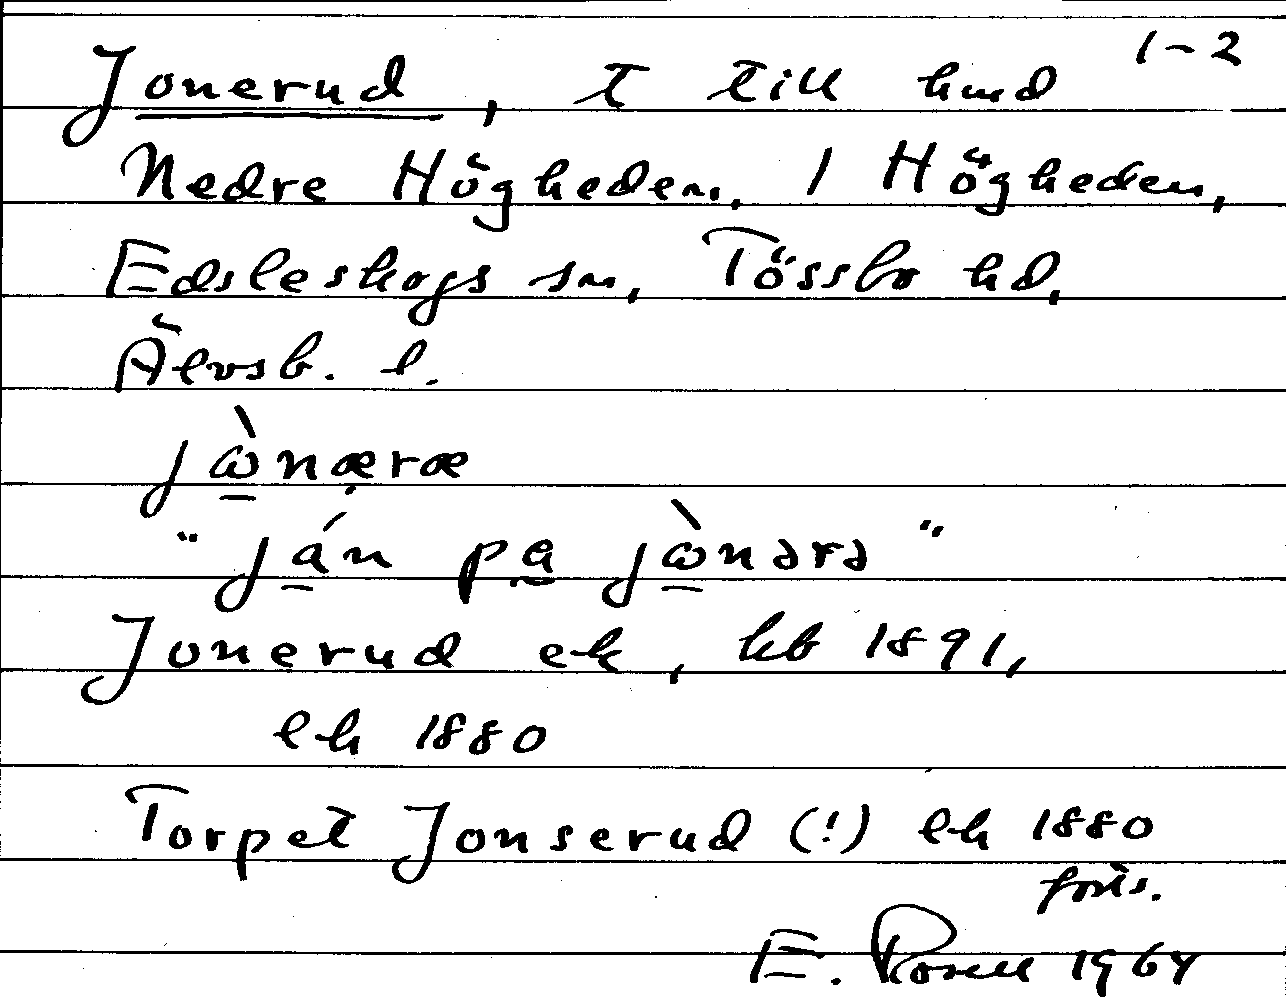 1-2
Jonerud, t till hmd
Nedre Högheden, 1 Högheden,
Edsleskogs sn, Tössbo hd,
Älvsb. l.
jὼnæræ
"ján pa jὼnərə"
Jonerud ek, hb 1891,
ek 1880
Torpet Jonserud (!) ek 1880
forts.
E. Rosell 1964